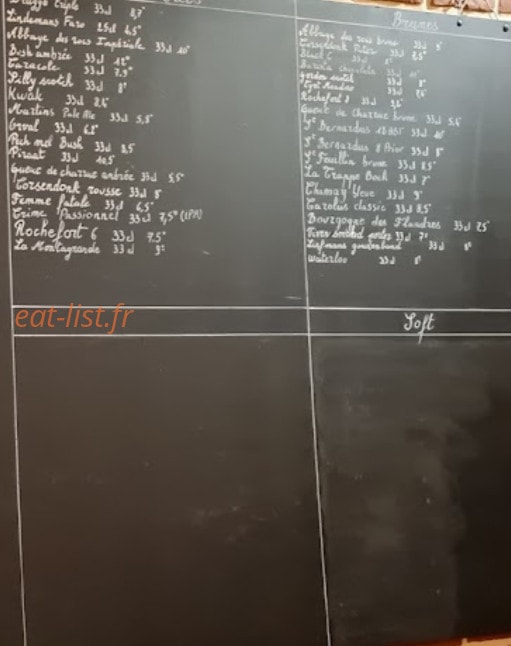 Triple 33cl 8,7°
Lindemans Faro 25cl 4,5°
Abbaye des rocs Impériale 33cl 10°
Bush ambrée 33cl 12°
Caracole 33cl 7,5°
Pilly scotch 33cl 8°
Kwak 33cl 8,4°
Martins Pale Ale 33cl 5,8°
Orval 33cl 6,2°
Pech mel Bush 33cl 8,5
Piraat 33cl 10,5
Queue de charrue ambrée 33cl 5,5°
Corsendonk rousse 33cl 8
Femme fatale 33cl 6,5°
Crime Passionnel 33cl 7,5° (IPA)
Rochefort 6 33cl 7.5°
La Montagnarde 33cl 9°
Brunes
Abbaye des rocs brune 33cl 9°
Corsendonk Pater 33cl
Black C 33cl 8°
chocolate 33cl 10°
gordon scotch 33cl 8°
33cl
Rochefort 8 33cl 9,2°
Queue de charrue brune 33cl 5,4
S^t Bernardus 12 ABT 33cl 10°
S^t Bernardus 8 Prior 33cl 8°
S^t Feuillien brune 33cl 8,5°
La Trappe Bock 33cl 7°
Chimay bleue 33cl 9°
Carolus classic 33cl 8,5°
Bourgogne des Flandres 33cl
smoked porter 33cl 7°
Liefmans goudenband 33cl 8°
Waterloo 33cl 8°
eat-list.fr
Soft